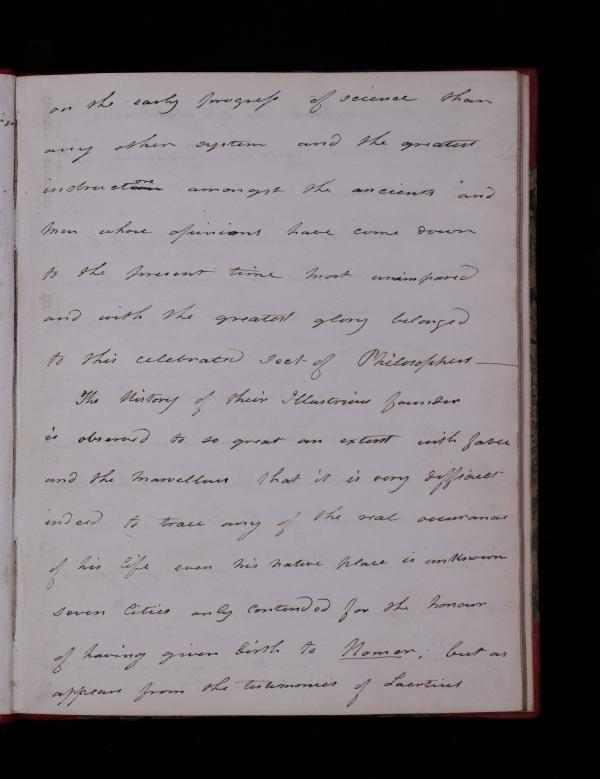 on the early progress of science than
any other system and the greatest
instructors amongst the ancients and
Men whose opinions have come down
to the present time most unimpared
and with the greatest glory belonged
to this celebrated Sect of Philosophers —
The History of their Illustrious founder
is obscured to so great an extent with fable
and the Marvellous that it is very difficult
indeed to trace any of the real occurances
of his life even his native place is unknown
seven Cities only contended for the honour
of having given birth to Homer; but as
appears from the testimonies of Laertius